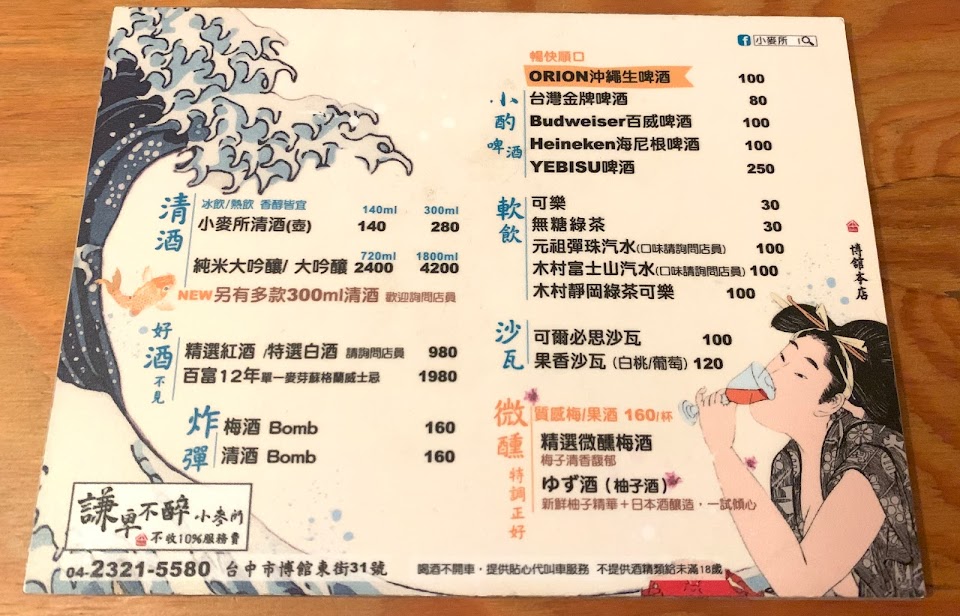 小麥所
暢快順口
ORION沖繩生啤酒 100
小酌啤酒
台灣金牌啤酒 80
Budweiser百威啤酒 100
Heineken海尼根啤酒 100
YEBISU啤酒 250
清酒
冰飲/熱飲 香醇皆宜 140ml 300ml
小麥所清酒(壺) 140 280
720ml 1800ml
純米大吟釀/ 大吟釀 2400 4200
NEW另有多款300ml清酒 歡迎詢問店員
軟飲
可樂 30
無糖綠茶 30
元祖彈珠汽水(口味請詢問店員) 100
木村富士山汽水(口味請詢問店員) 100
木村靜岡綠茶可樂 100
博館本店
好酒不見
精選紅酒 /特選白酒 請詢問店員 980
百富12年單一麥芽蘇格蘭威士忌 1980
沙瓦
可爾必思沙瓦 100
果香沙瓦 (白桃/葡萄) 120
炸彈
梅酒 Bomb 160
清酒 Bomb 160
微醺 特調正好
質感梅/果酒 160/杯
精選微醺梅酒
梅子清香馥郁
ゆず酒 (柚子酒)
新鮮柚子精華+日本酒釀造,一試傾心
謙卑不醉 小麥所
不收10%服務費
04-2321-5580 台中市博館東街31號
喝酒不開車,提供貼心代叫車服務 不提供酒精類給未滿18歲